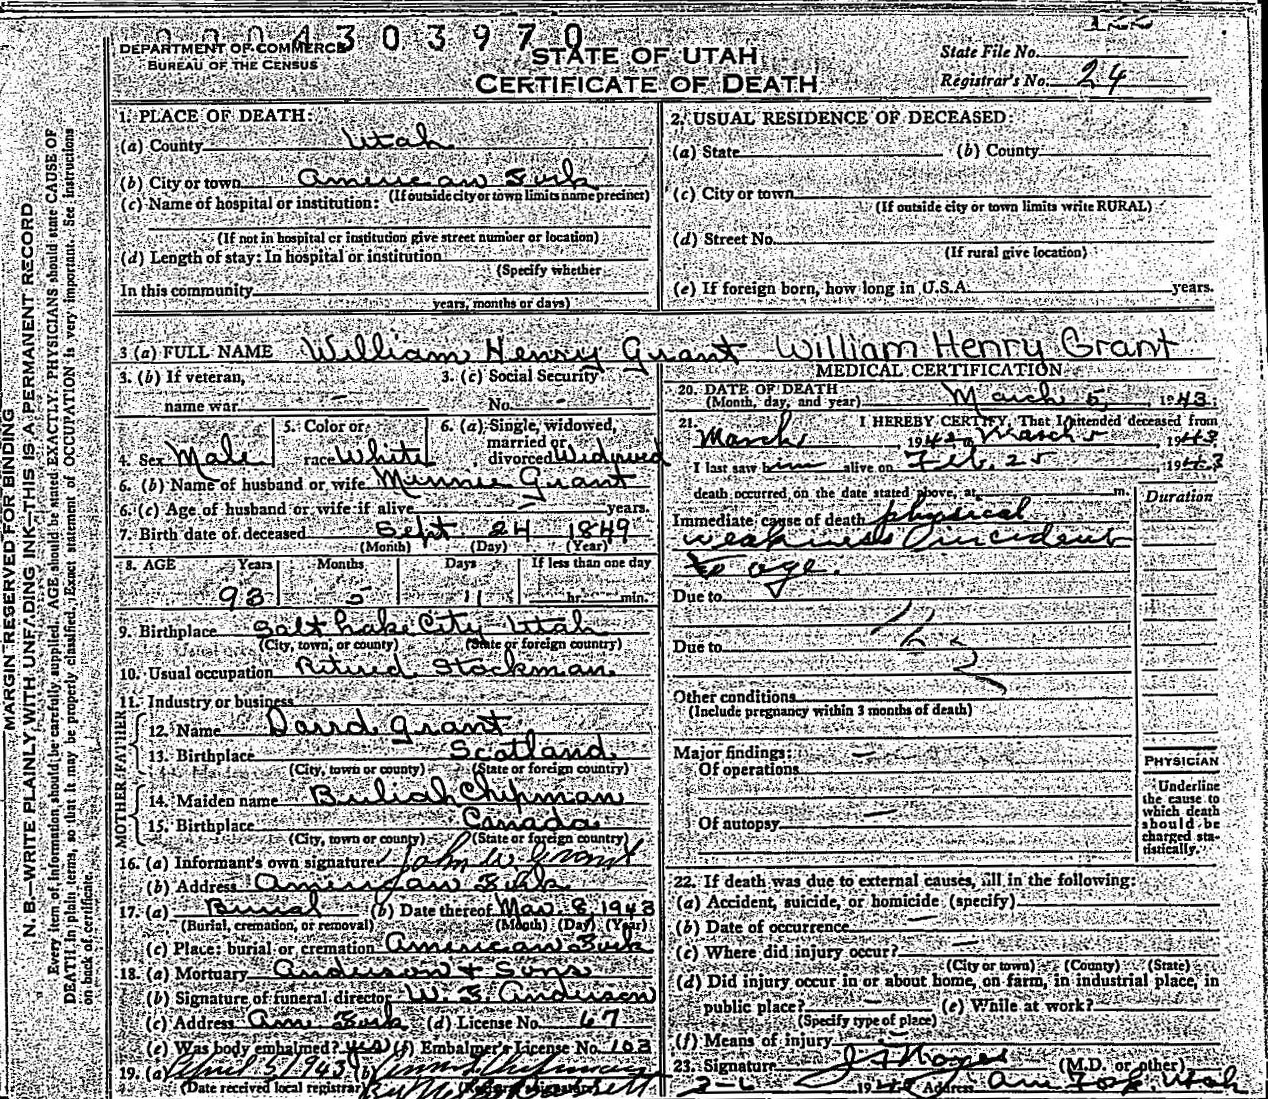 0004303970
DEPARTMENT OF COMMERCE
BUREAU OF THE CENSUS
STATE OF UTAH
CERTIFICATE OF DEATH
State File No.
Registrar's No. 24
MARGIN RESERVED FOR BINDING
N. B.—WRITE PLAINLY, WITH UNFADING INK—THIS IS A PERMANENT RECORD
Every item of information should be carefully supplied. AGE should be stated EXACTLY. PHYSICIANS should state CAUSE OF
DEATH in plain terms, so that it may be properly classified. Exact statement of OCCUPATION is very important. See instructions
on back of certificate.
1. PLACE OF DEATH:
(a) County Utah
(b) City or town American Fork
(If outside city or town limits name precinct)
(c) Name of hospital or institution:
(If not in hospital or institution give street number or location)
(d) Length of stay: In hospital or institution
(Specify whether
In this community
years, months or days)
2. USUAL RESIDENCE OF DECEASED:
(a) State (b) County
(c) City or town
(If outside city or town limits write RURAL)
(d) Street No.
(If rural give location)
(e) If foreign born, how long in U.S.A. years.
3 (a) FULL NAME William Henry Grant William Henry Grant
3. (b) If veteran, name war - 3. (c) Social Security No. -
4. Sex Male 5. Color or race White 6. (a) Single, widowed, married or divorced Widowed
6. (b) Name of husband or wife Minnie Grant
6. (c) Age of husband or wife if alive - years.
7. Birth date of deceased Sept 24 1849
(Month) (Day) (Year)
8. AGE Years Months Days If less than one day
93 5 11 hr. min.
9. Birthplace Salt Lake City Utah
(City, town, or county) (State or foreign country)
10. Usual occupation Retired Stockman.
11. Industry or business
FATHER
12. Name David Grant
13. Birthplace Scotland.
(City, town or county) (State or foreign country)
MOTHER
14. Maiden name Buliah Chipman
15. Birthplace Canada.
(City, town or county) (State or foreign country)
16. (a) Informant's own signature John W. Grant
(b) Address American Fork
17. (a) Burial (b) Date thereof Mar. 8, 1943
(Burial, cremation, or removal) (Month) (Day) (Year)
(c) Place: burial or cremation American Fork
18. (a) Mortuary Anderson & Sons
(b) Signature of funeral director W. E. Anderson
(c) Address Am Fork (d) License No. 67
(e) Was body embalmed? yes (f) Embalmer's License No. 103
19. (a) 1943 (b)
(Date received local registrar) (Registrar's signature)
MEDICAL CERTIFICATION
20. DATE OF DEATH
(Month, day, and year) March 5, 1943.
21. I HEREBY CERTIFY, That I attended deceased from
March, 1942 to March 5 1943
I last saw him alive on Feb. 25, 1943
death occurred on the date stated above, at m.
Duration
Immediate cause of death physical
weakness incident
to age.
Due to
Due to
Other conditions
(Include pregnancy within 3 months of death)
Major findings:
Of operations
Of autopsy
PHYSICIAN
Underline
the cause to
which death
should be
charged sta-
tistically.
22. If death was due to external causes, fill in the following:
(a) Accident, suicide, or homicide (specify)
(b) Date of occurrence
(c) Where did injury occur?
(City or town) (County) (State)
(d) Did injury occur in or about home, on farm, in industrial place, in
public place? (e) While at work?
(Specify type of place)
(f) Means of injury
23. Signature J F Noyes (M.D. or other)
3-6 1943 Address Am Fork, Utah